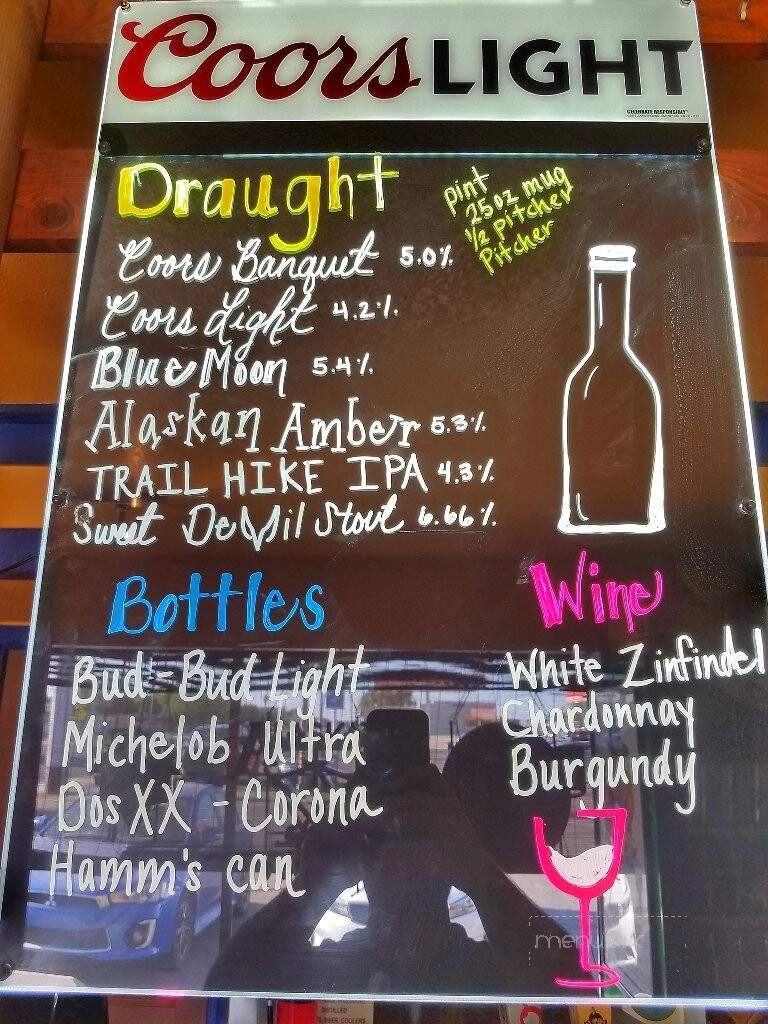 Coors LIGHT
CELEBRATE RESPONSIBLY
Draught
pint
25oz mug
1/2 pitcher
Pitcher
Coors Banquet 5.0%
Coors Light 4.2%
Blue Moon 5.4%
Alaskan Amber 5.3%
TRAIL HIKE IPA 4.3%
Sweet Devil Stout 6.66%
Bottles
Bud-Bud Light
Michelob Ultra
Dos XX - Corona
Hamm's can
Wine
White Zinfindel
Chardonnay
Burgundy